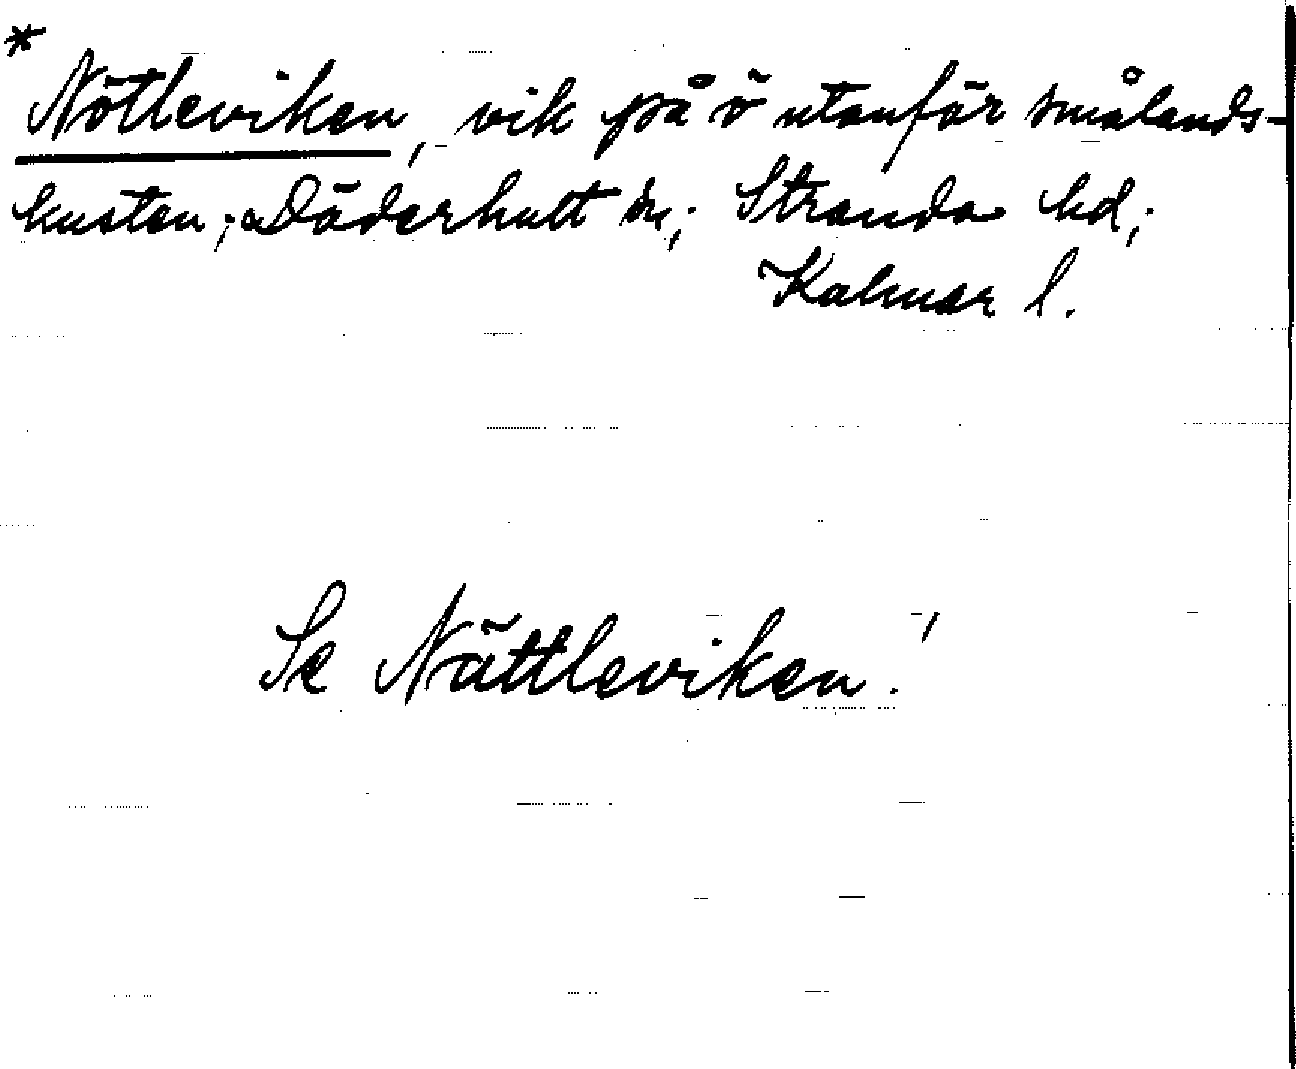 * Nötleviken, vik på ö utanför smålands-
kusten; Döderhult sn; Stranda hd;
Kalmar l.
Se Nättleviken!